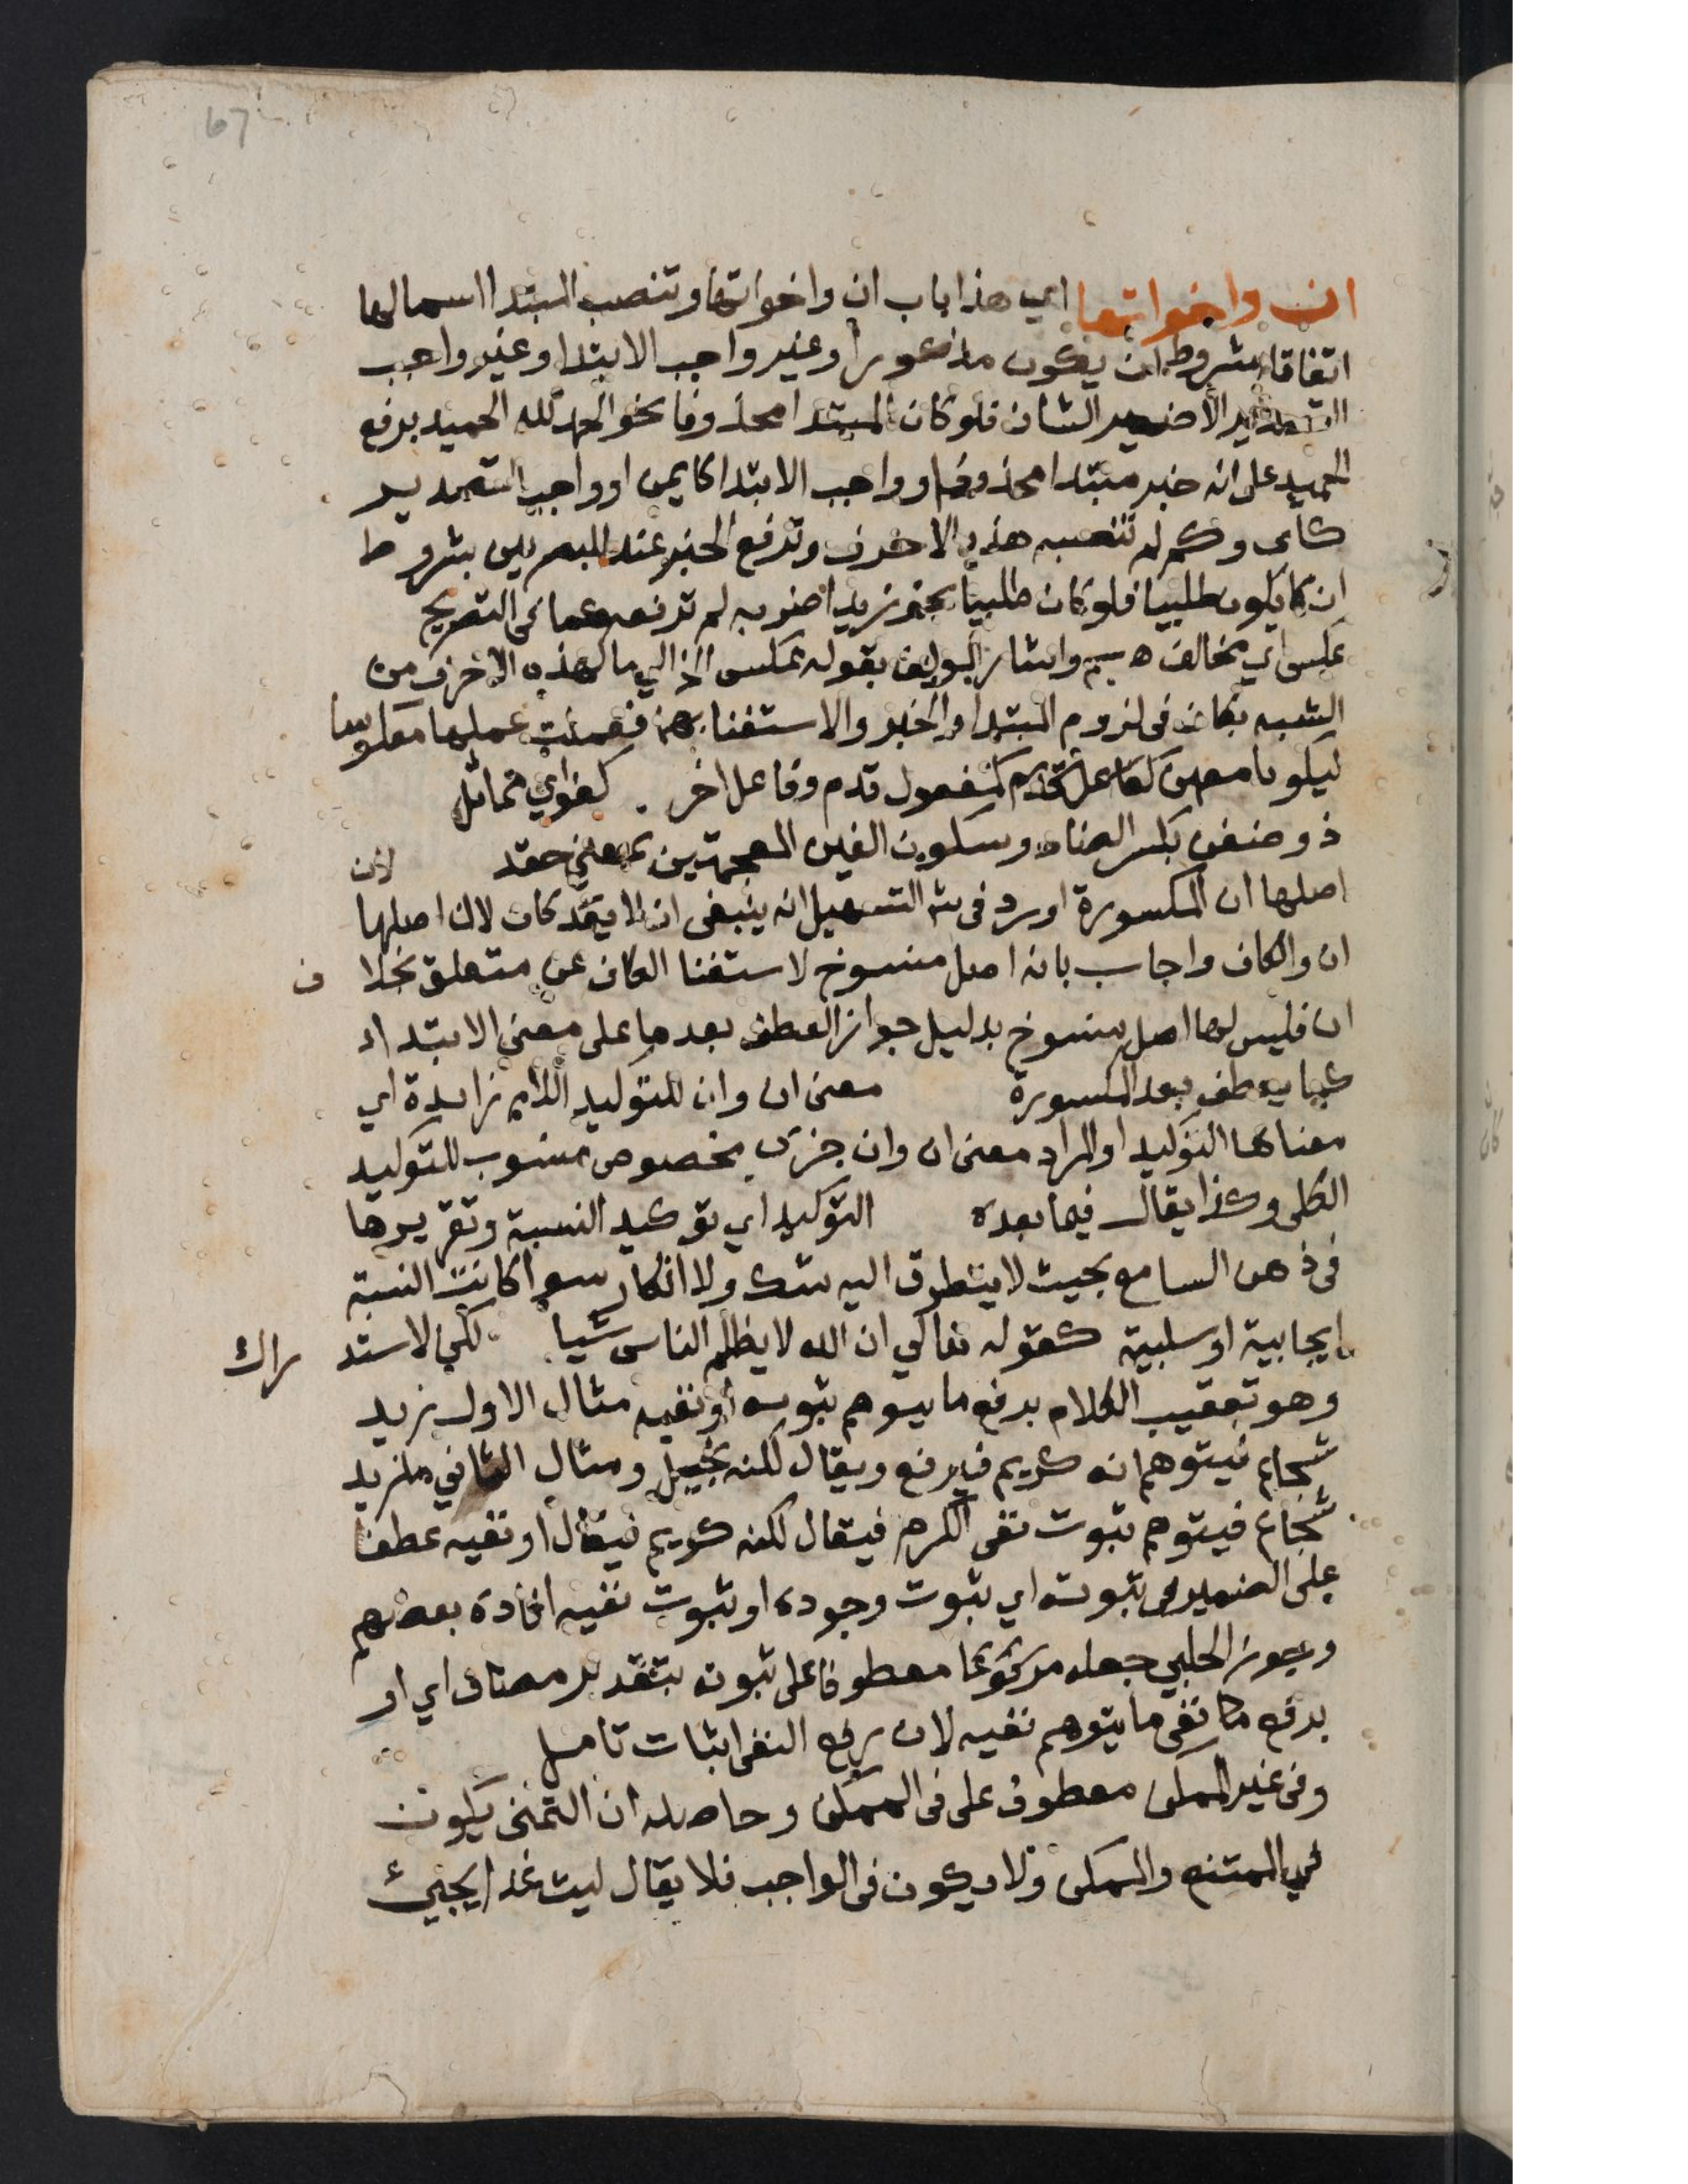 67
ان واخواتها اي هذا باب ان واخواتها وتنصب المبتدا اسما لها
اتفاقا بشروط ان يكون مذكورا وغير واجب الابتدا وغير واجب
التصدير الا ضمير الشان فلو كان المبتدا محذوفا نحو الحمد لله الحميد برفع
الحميد على انه خبر مبتدا محذوف او واجب الابتدا كايمن او واجب التصدير
كاى وكم لم تنصبه هذه الاحرف وترفع الخبر عند البصريين بشروط
ان لا يكون طلبيا فلو كان طلبيا نحو زيد اضربه لم ترفعه وعما في التصريح
عكس اي مخالف واشار المولف بقوله عكس الخ الي ما لهذه الاحرف من
الشبه بكان في لزوم المبتدا والخبر والاستغنا بهما فعملت عملها معكوسا
ليكونا معهن كمفعول قدم وفاعل اخر . كفواي مماثل
ذو ضغن بكسر الضاد وسكون الغين المعجمتين بمعني حقد لان
اصلها ان المكسورة اورد في ش التسهيل انه ينبغي ان لا يعد كان لان اصلها
ان والكاف واجاب بانه اصل منسوخ لاستغنا الكاف عن متعلق بخلاف
ان فليس لها اصل منسوخ بدليل جواز العطف بعدها على معني الابتداء
كما يعطف بعد المكسورة معني ان وان للتوكيد اللام زايدة اي
معناها التوكيد او المراد معني ان وان جزى مخصوص منسوب للتوكيد
الكلي وكذا يقال فيما بعده التوكيد اي توكيد النسبة وتقريرها
في ذهن السامع بحيث لا يتطرق اليه شك ولا انكار سوا كانت النسبة
ايجابية او سلبية كقوله تعالي ان الله لا يظلم الناس شيا لكن للاستدراك
وهو تعقيب الكلام برفع ما يتوهم ثبوته او نفيه مثال الاول زيد
شجاع فيتوهم انه كريم فيرفع ويقال لكنه بخيل ومثال الثاني ما زيد
شجاع فيتوهم ثبوت نفي الكرم فيقال لكنه كريم فيقال او نفيه عطفا
على الضمير في ثبوته اي ثبوت وجوده او ثبوت نفيه افاده بعضهم
وجوز الحلبي جعله مرفوعا معطوفا على ثبوته بتقدير مضاف اي او
برفع نفي ما يتوهم نفيه لان رفع النفي اثبات تامل
وفي غير الممكن معطوف على في الممكن وحاصله ان التمني يكون
في الممتنع والممكن ولا يكون في الواجب فلا يقال ليت غدا يجيئ